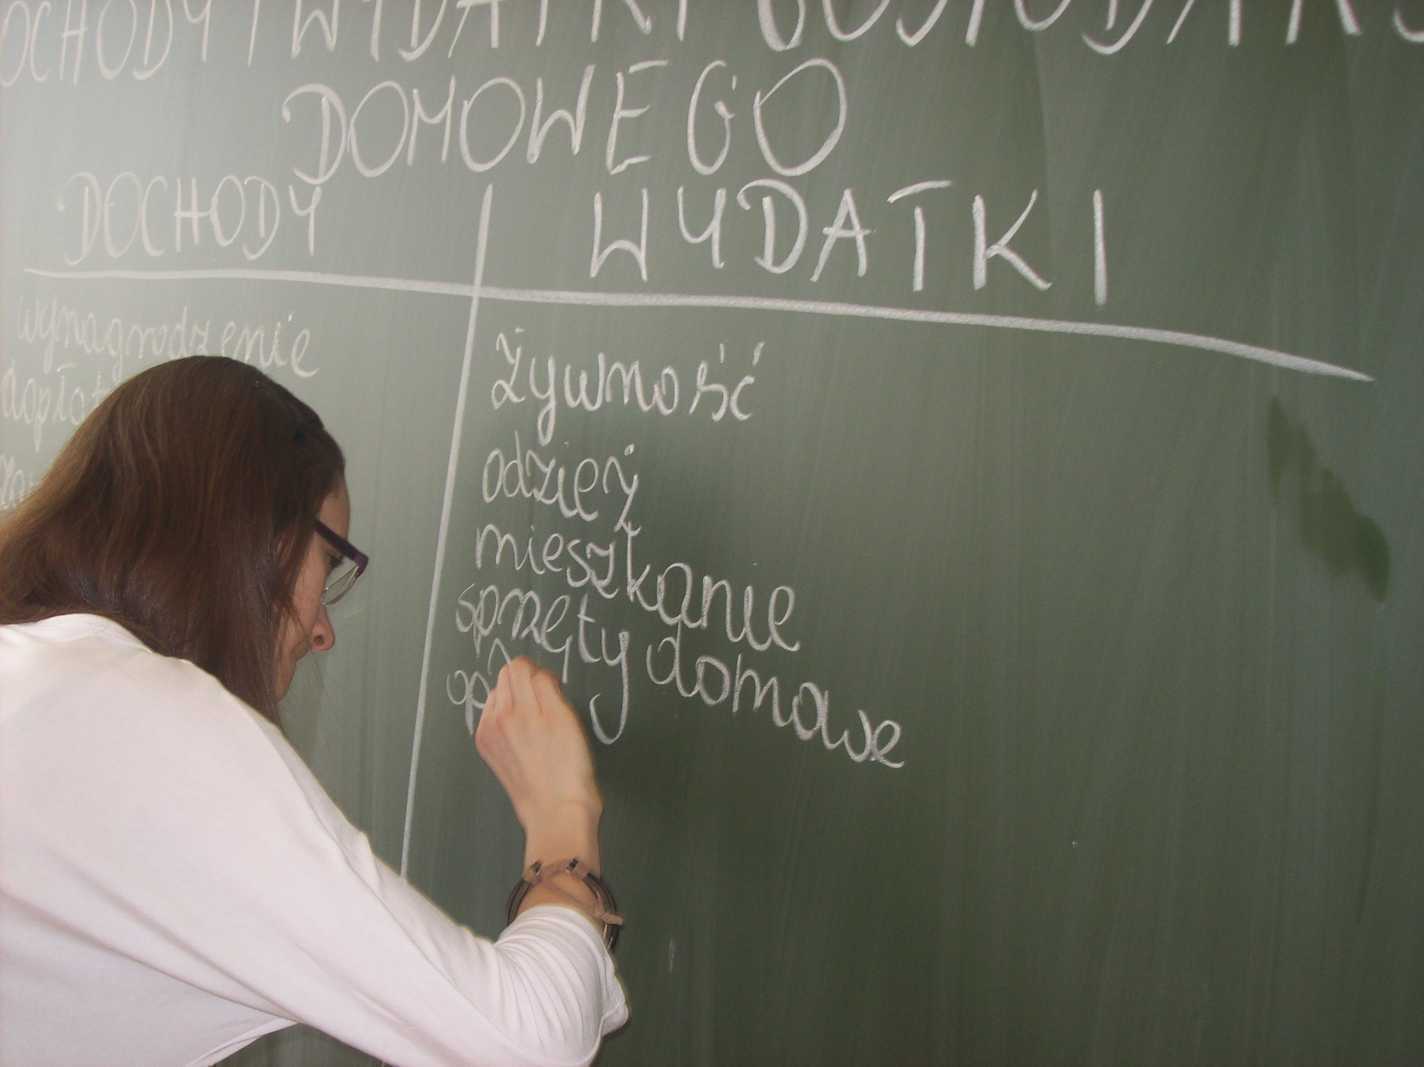 OCHODY I WYDATKI GOSPODARS
DOMOWEGO
DOCHODY WYDATKI
wynagrodzenie
żywność
odzież
mieszkanie
sprzęty domowe